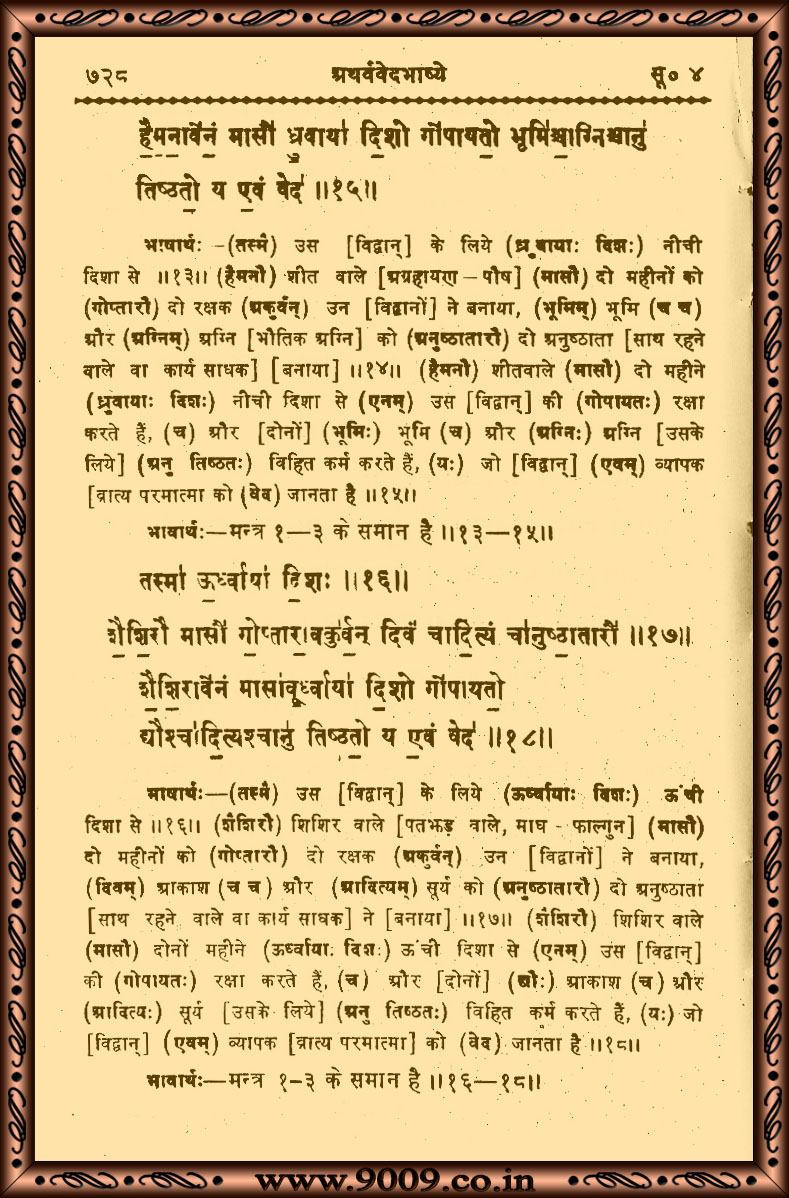 ७२८ अथर्ववेदभाष्ये सू० ४
हैमनावेनं मासौ ध्रुवाया दिशो गोपायतो भूमिश्चाग्निश्चानु
तिष्ठतो य एवं वेद ॥१५॥
भाषार्थः -(तस्मै) उस [विद्वान्] के लिये (ध्रुवायाः दिशः) नीची
दिशा से ॥१३॥ (हैमनौ) शीत वाले [अग्रहायण – पौष] (मासौ) दो महीनों को
(गोप्तारौ) दो रक्षक (अकुर्वन्) उन [विद्वानों] ने बनाया, (भूमिम्) भूमि (च च)
और (अग्निम्) अग्नि [भौतिक अग्नि] को (अनुष्ठातारौ) दो अनुष्ठाता [साथ रहने
वाले वा कार्य साधक] [बनाया] ॥१४॥ (हैमनौ) शीतवाले (मासौ) दो महीने
(ध्रुवायाः दिशः) नीची दिशा से (एनम्) उस [विद्वान्] की (गोपायतः) रक्षा
करते हैं, (च) और [दोनों] (भूमिः) भूमि (च) और (अग्निः) अग्नि [उसके
लिये] (अनु तिष्ठतः) विहित कर्म करते हैं, (यः) जो [विद्वान्] (एवम्) व्यापक
[व्रात्य परमात्मा को (वेद) जानता है ॥१५॥
भावार्थः—मन्त्र १—३ के समान है ॥१३—१५॥
तस्मा ऊर्ध्वाया दिशः ॥१६॥
शैशिरौ मासौ गोप्तारावकुर्वन् दिवं चादित्यं चानुष्ठातारौ ॥१७॥
शैशिरावेनं मासावूर्ध्वाया दिशो गोपायतो
द्यौश्चादित्यश्चानु तिष्ठतो य एवं वेद ॥१८॥
भाषार्थः—(तस्मै) उस [विद्वान्] के लिये (ऊर्ध्वायाः दिशः) ऊंची
दिशा से ॥१६॥ (शैशिरौ) शिशिर वाले [पतझड़ वाले, माघ - फाल्गुन] (मासौ)
दो महीनों को (गोप्तारौ) दो रक्षक (अकुर्वन्) उन [विद्वानों] ने बनाया,
(दिवम्) आकाश (च च) और (आदित्यम्) सूर्य को (अनुष्ठातारौ) दो अनुष्ठाता
[साथ रहने वाले वा कार्य साधक] ने [बनाया] ॥१७॥ (शैशिरौ) शिशिर वाले
(मासौ) दोनों महीने (ऊर्ध्वायाः दिशः) ऊंची दिशा से (एनम्) उस [विद्वान्]
की (गोपायतः) रक्षा करते हैं, (च) और [दोनों] (द्यौः) आकाश (च) और
(आदित्यः) सूर्य [उसके लिये] (अनु तिष्ठतः) विहित कर्म करते हैं, (यः) जो
[विद्वान्] (एवम्) व्यापक [व्रात्य परमात्मा] को (वेद) जानता है ॥१८॥
भावार्थः—मन्त्र १-३ के समान है ॥१६—१८॥
www.9009.co.in